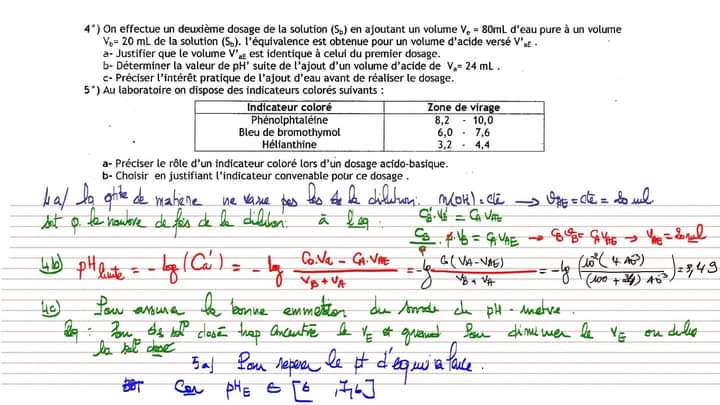 4°) On effectue un deuxième dosage de la solution (S_b) en ajoutant un volume V_e = 80mL d'eau pure à un volume
V_b= 20 mL de la solution (S_b). l'équivalence est obtenue pour un volume d'acide versé V'_aE .
a- Justifier que le volume V'_aE est identique à celui du premier dosage.
b- Déterminer la valeur de pH' suite de l'ajout d'un volume d'acide de V_a= 24 mL .
c- Préciser l'intérêt pratique de l'ajout d'eau avant de réaliser le dosage.
5°) Au laboratoire on dispose des indicateurs colorés suivants :
Indicateur coloré Zone de virage
Phénolphtaléine 8,2 - 10,0
Bleu de bromothymol 6,0 - 7,6
Hélianthine 3,2 - 4,4
a- Préciser le rôle d'un indicateur coloré lors d'un dosage acido-basique.
b- Choisir en justifiant l'indicateur convenable pour ce dosage .
4a/ la qtité de matière ne varie pas lors de la dilution. n(OH⁻) = cte → V_AE = cte = 20 mL
le nombre de fois de la dilution: à l'eq: C'_B.V'_B = C_A V_AE
C_B . V_B = C_A V_AE → C_B V_B = C_A V_AE → V_AE = 20 mL
4b) pH = -log(C'a) = -log V_B + V_A = -log C_A (V_A - V_AE) V_B + V_A = -log (10⁻² (4 10⁻³) (100 + 24) 10⁻³) = 3,49
4c) Pour assurer la bonne du sonde du pH - mètre.
Rq : dosé trop le V_E est grand Pour diminuer le V_E on dilue
la sol° dosé
5a) Pour repérer le pt d'équivalence.
BBT Car pH_E ∈ [6 , 7,6]